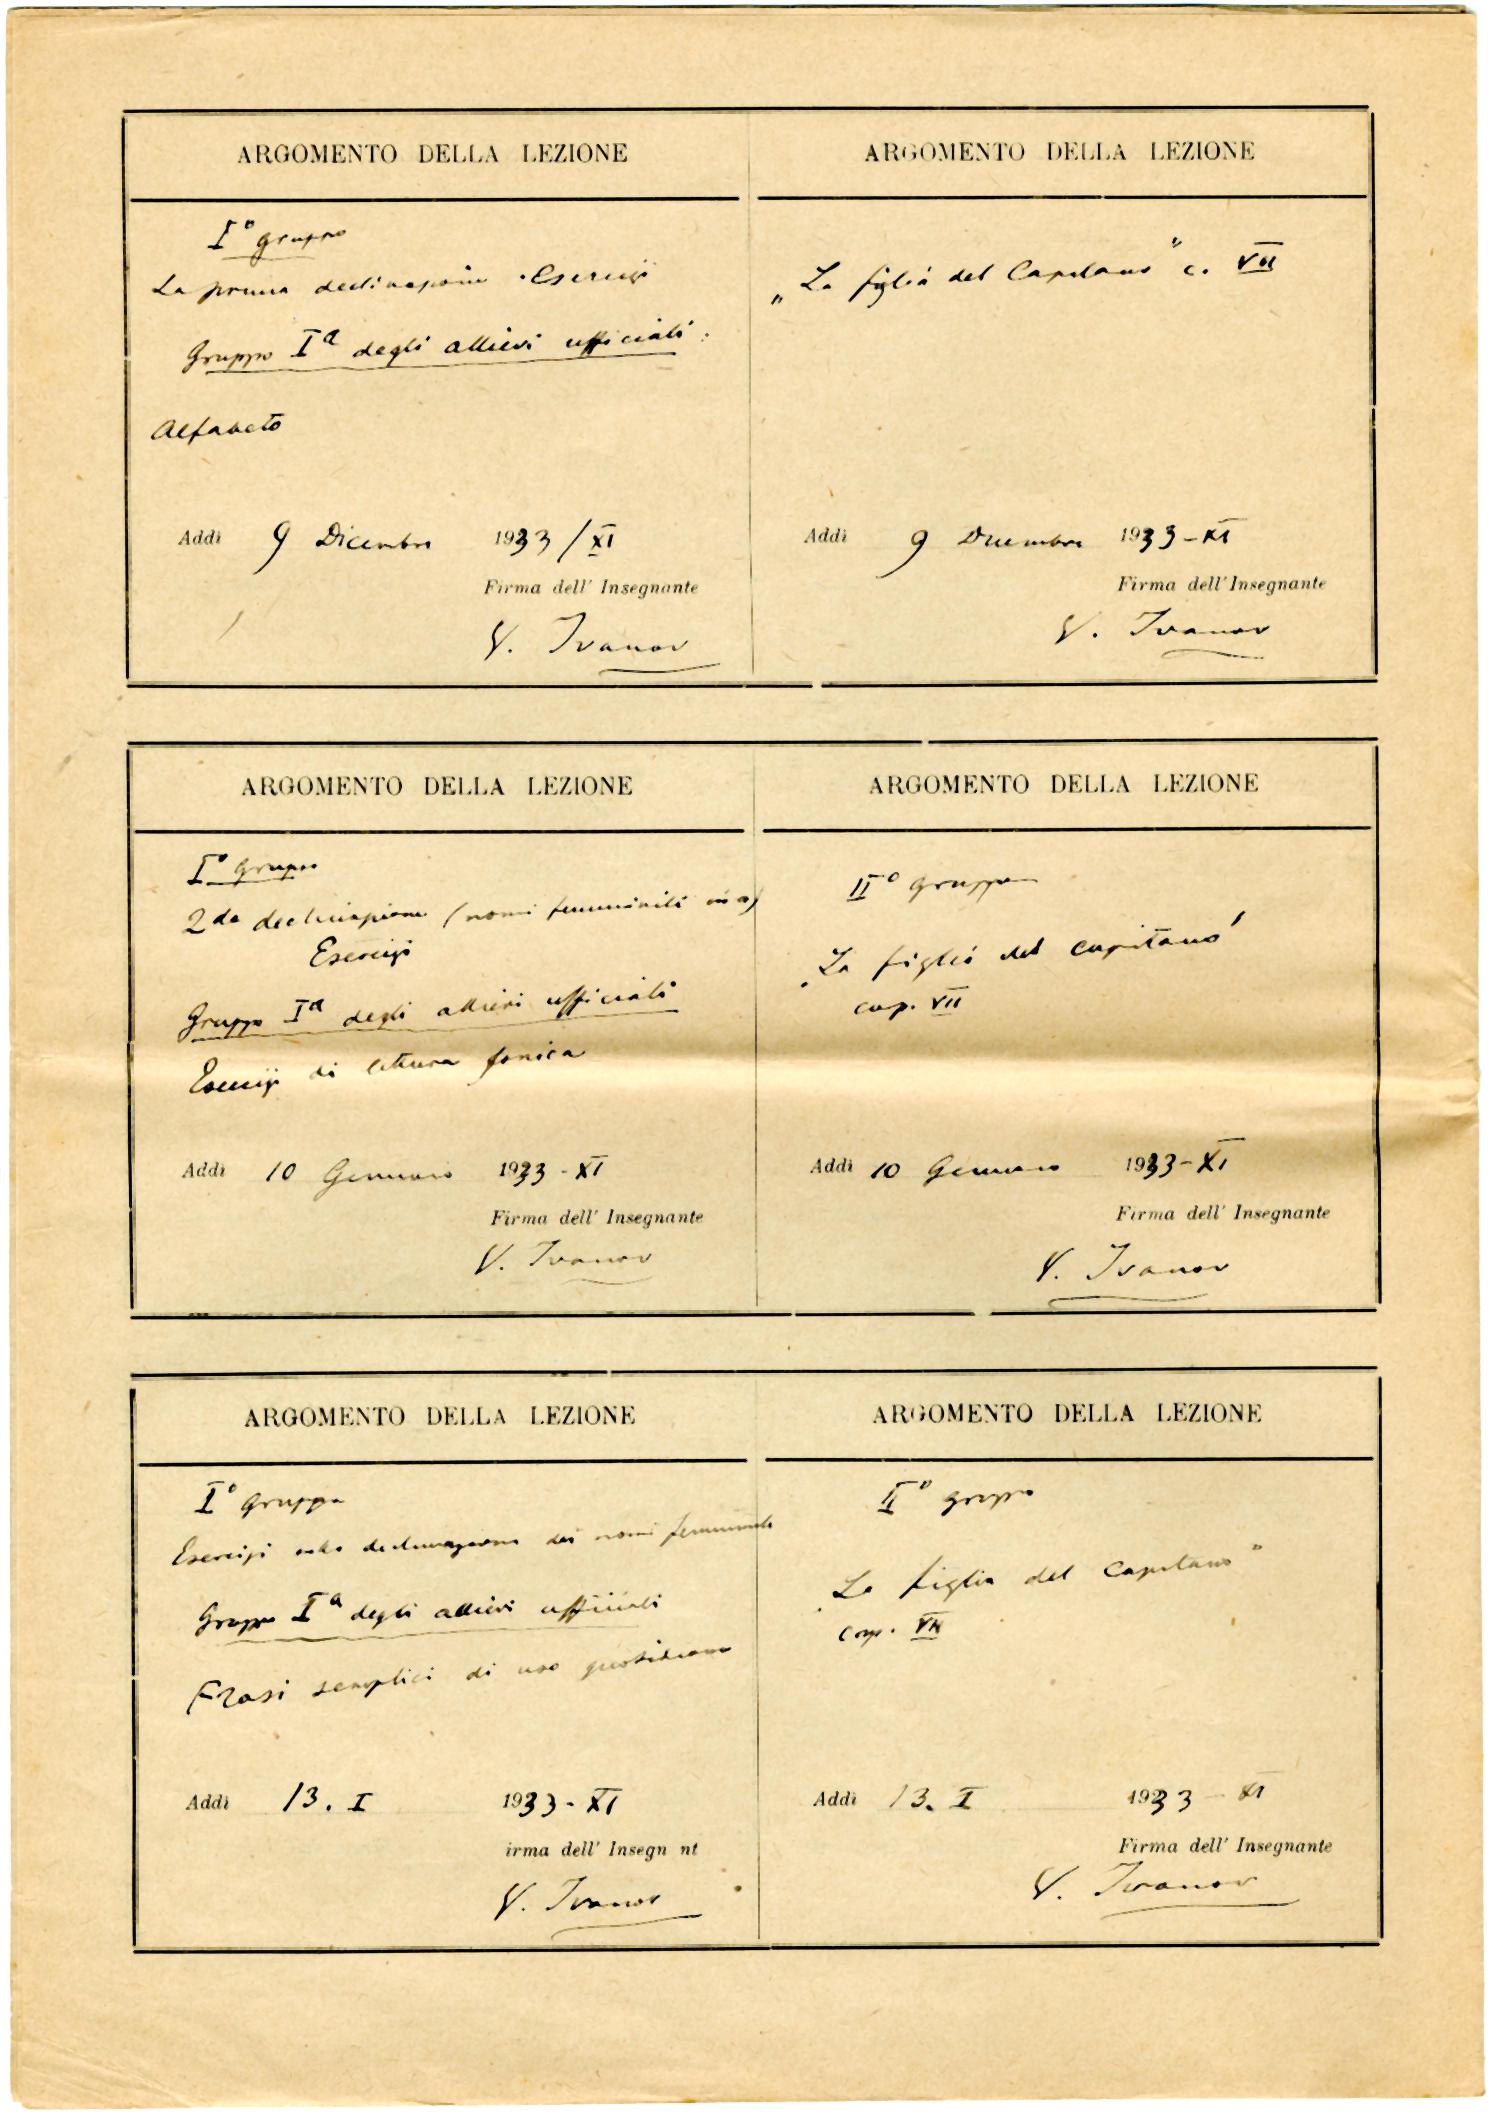 ARGOMENTO DELLA LEZIONE
I° gruppo
La prima declinazione. Esercizi
Gruppo Iª degli allievi ufficiali:
Alfabeto
Addì 9 Dicembre 1933/XI
Firma dell' Insegnante
V. Ivanov
ARGOMENTO DELLA LEZIONE
„La figlia del Capitano" c. VII
Addì 9 Dicembre 1933-XI
Firma dell' Insegnante
V. Ivanov
ARGOMENTO DELLA LEZIONE
I° gruppo
2da declinazione (nomi femminili in a)
Esercizi
Gruppo Iª degli allievi ufficiali
Esercizi di lettura fonica
Addì 10 Gennaio 1933-XI
Firma dell' Insegnante
V. Ivanov
ARGOMENTO DELLA LEZIONE
II° gruppo
„La figlia del capitano"
cap. VII
Addì 10 Gennaio 1933-XI
Firma dell' Insegnante
V. Ivanov
ARGOMENTO DELLA LEZIONE
I° gruppo
Esercizi sulla declinazione dei nomi femminili
Gruppo Iª degli allievi ufficiali
Frasi semplici di uso quotidiano
Addì 13. I 1933-XI
irma dell' Insegn nt
V. Ivanov
ARGOMENTO DELLA LEZIONE
II° gruppo
„La figlia del Capitano"
cap. VII
Addì 13. I 1933-XI
Firma dell' Insegnante
V. Ivanov